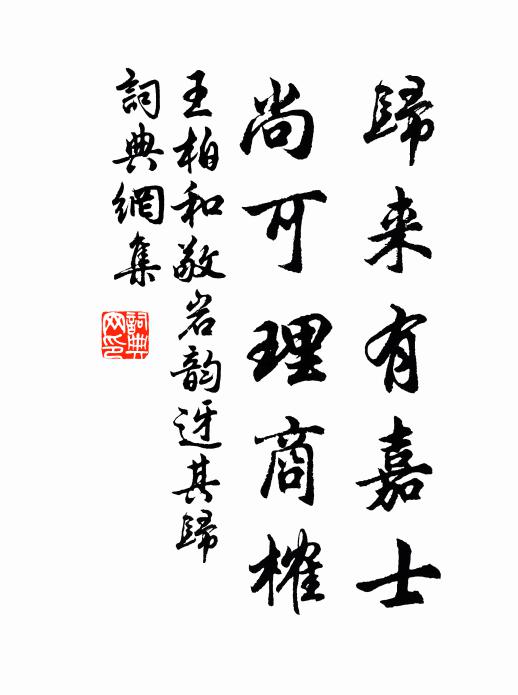 歸来有嘉士
尚可理商榷
王柏和敬岩韵迓其歸
詞典網集
詞典网印